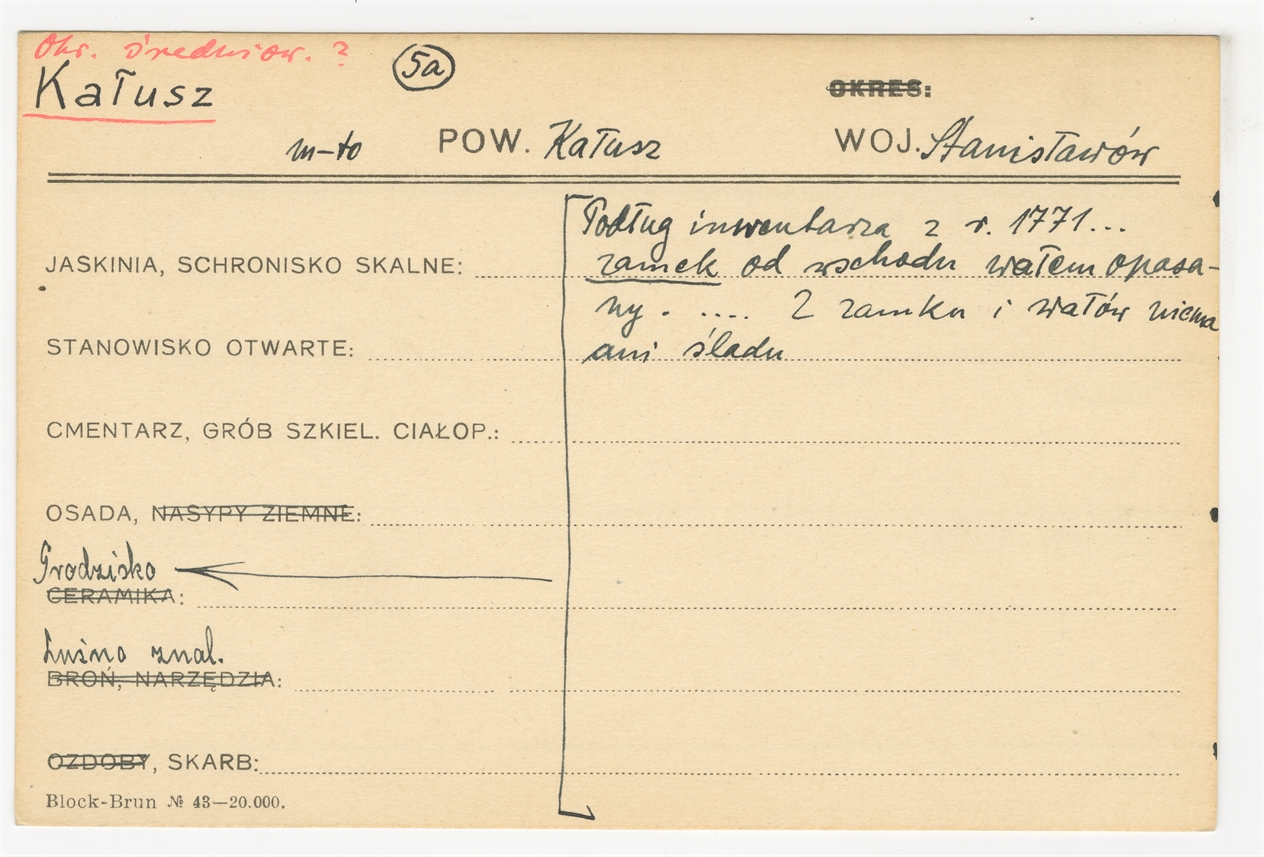 Okr. średniow. ?
Kałusz
5a
OKRES:
m-to POW. Kałusz WOJ. Stanisławów
Podług inwentarza z r. 1771...
JASKINIA, SCHRONISKO SKALNE: zamek od wschodu wałem opasa-
ny . .... Z zamku i wałów niema
STANOWISKO OTWARTE: ani śladu
CMENTARZ, GRÓB SZKIEL. CIAŁOP.:
OSADA, NASYPY ZIEMNE:
Grodzisko
CERAMIKA:
Luźno znal.
BROŃ, NARZĘDZIA:
OZDOBY, SKARB:
Block-Brun № 43—20.000.